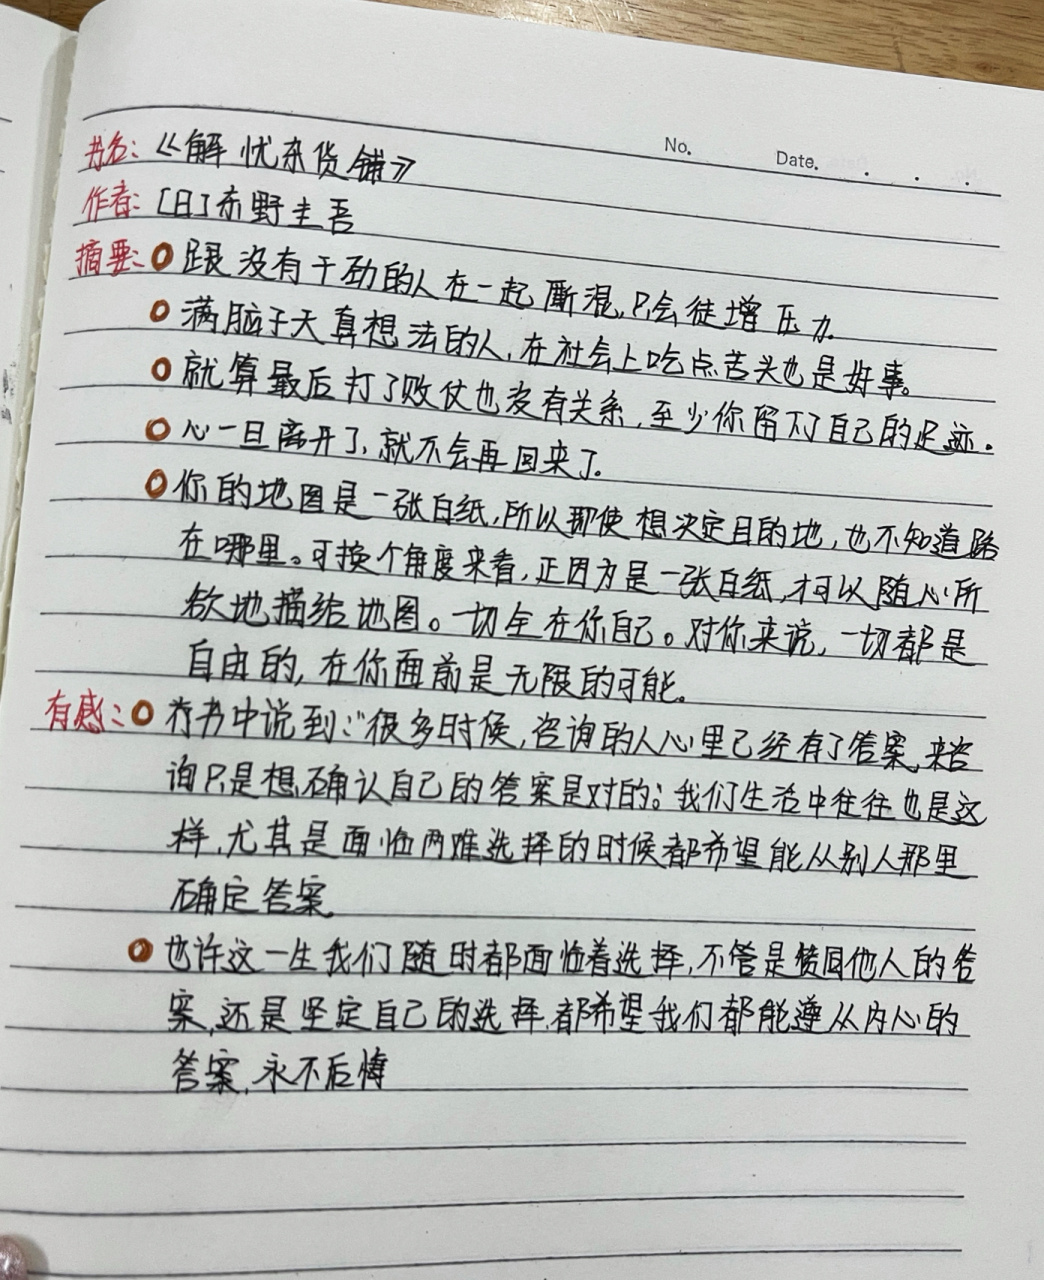 No. Date.
书名：《解忧杂货铺》
作者：[日]东野圭吾
摘要：跟没有干劲的人在一起厮混，只会徒增压力。
满脑子天真想法的人，在社会上吃点苦头也是好事。
就算最后打了败仗也没有关系，至少你留下了自己的足迹。
心一旦离开了，就不会再回来了。
你的地图是一张白纸，所以即使想决定目的地，也不知道路
在哪里。可换个角度来看，正因为是一张白纸，才可以随心所
欲地描绘地图。一切全在你自己。对你来说，一切都是
自由的，在你面前是无限的可能。
有感：书中说到：“很多时候，咨询的人心里已经有了答案，来咨
询只是想确认自己的答案是对的；我们生活中往往也是这
样，尤其是面临两难选择的时候都希望能从别人那里
确定答案。
也许这一生我们随时都面临着选择，不管是赞同他人的答
案，还是坚定自己的选择，都希望我们都能遵从内心的
答案，永不后悔